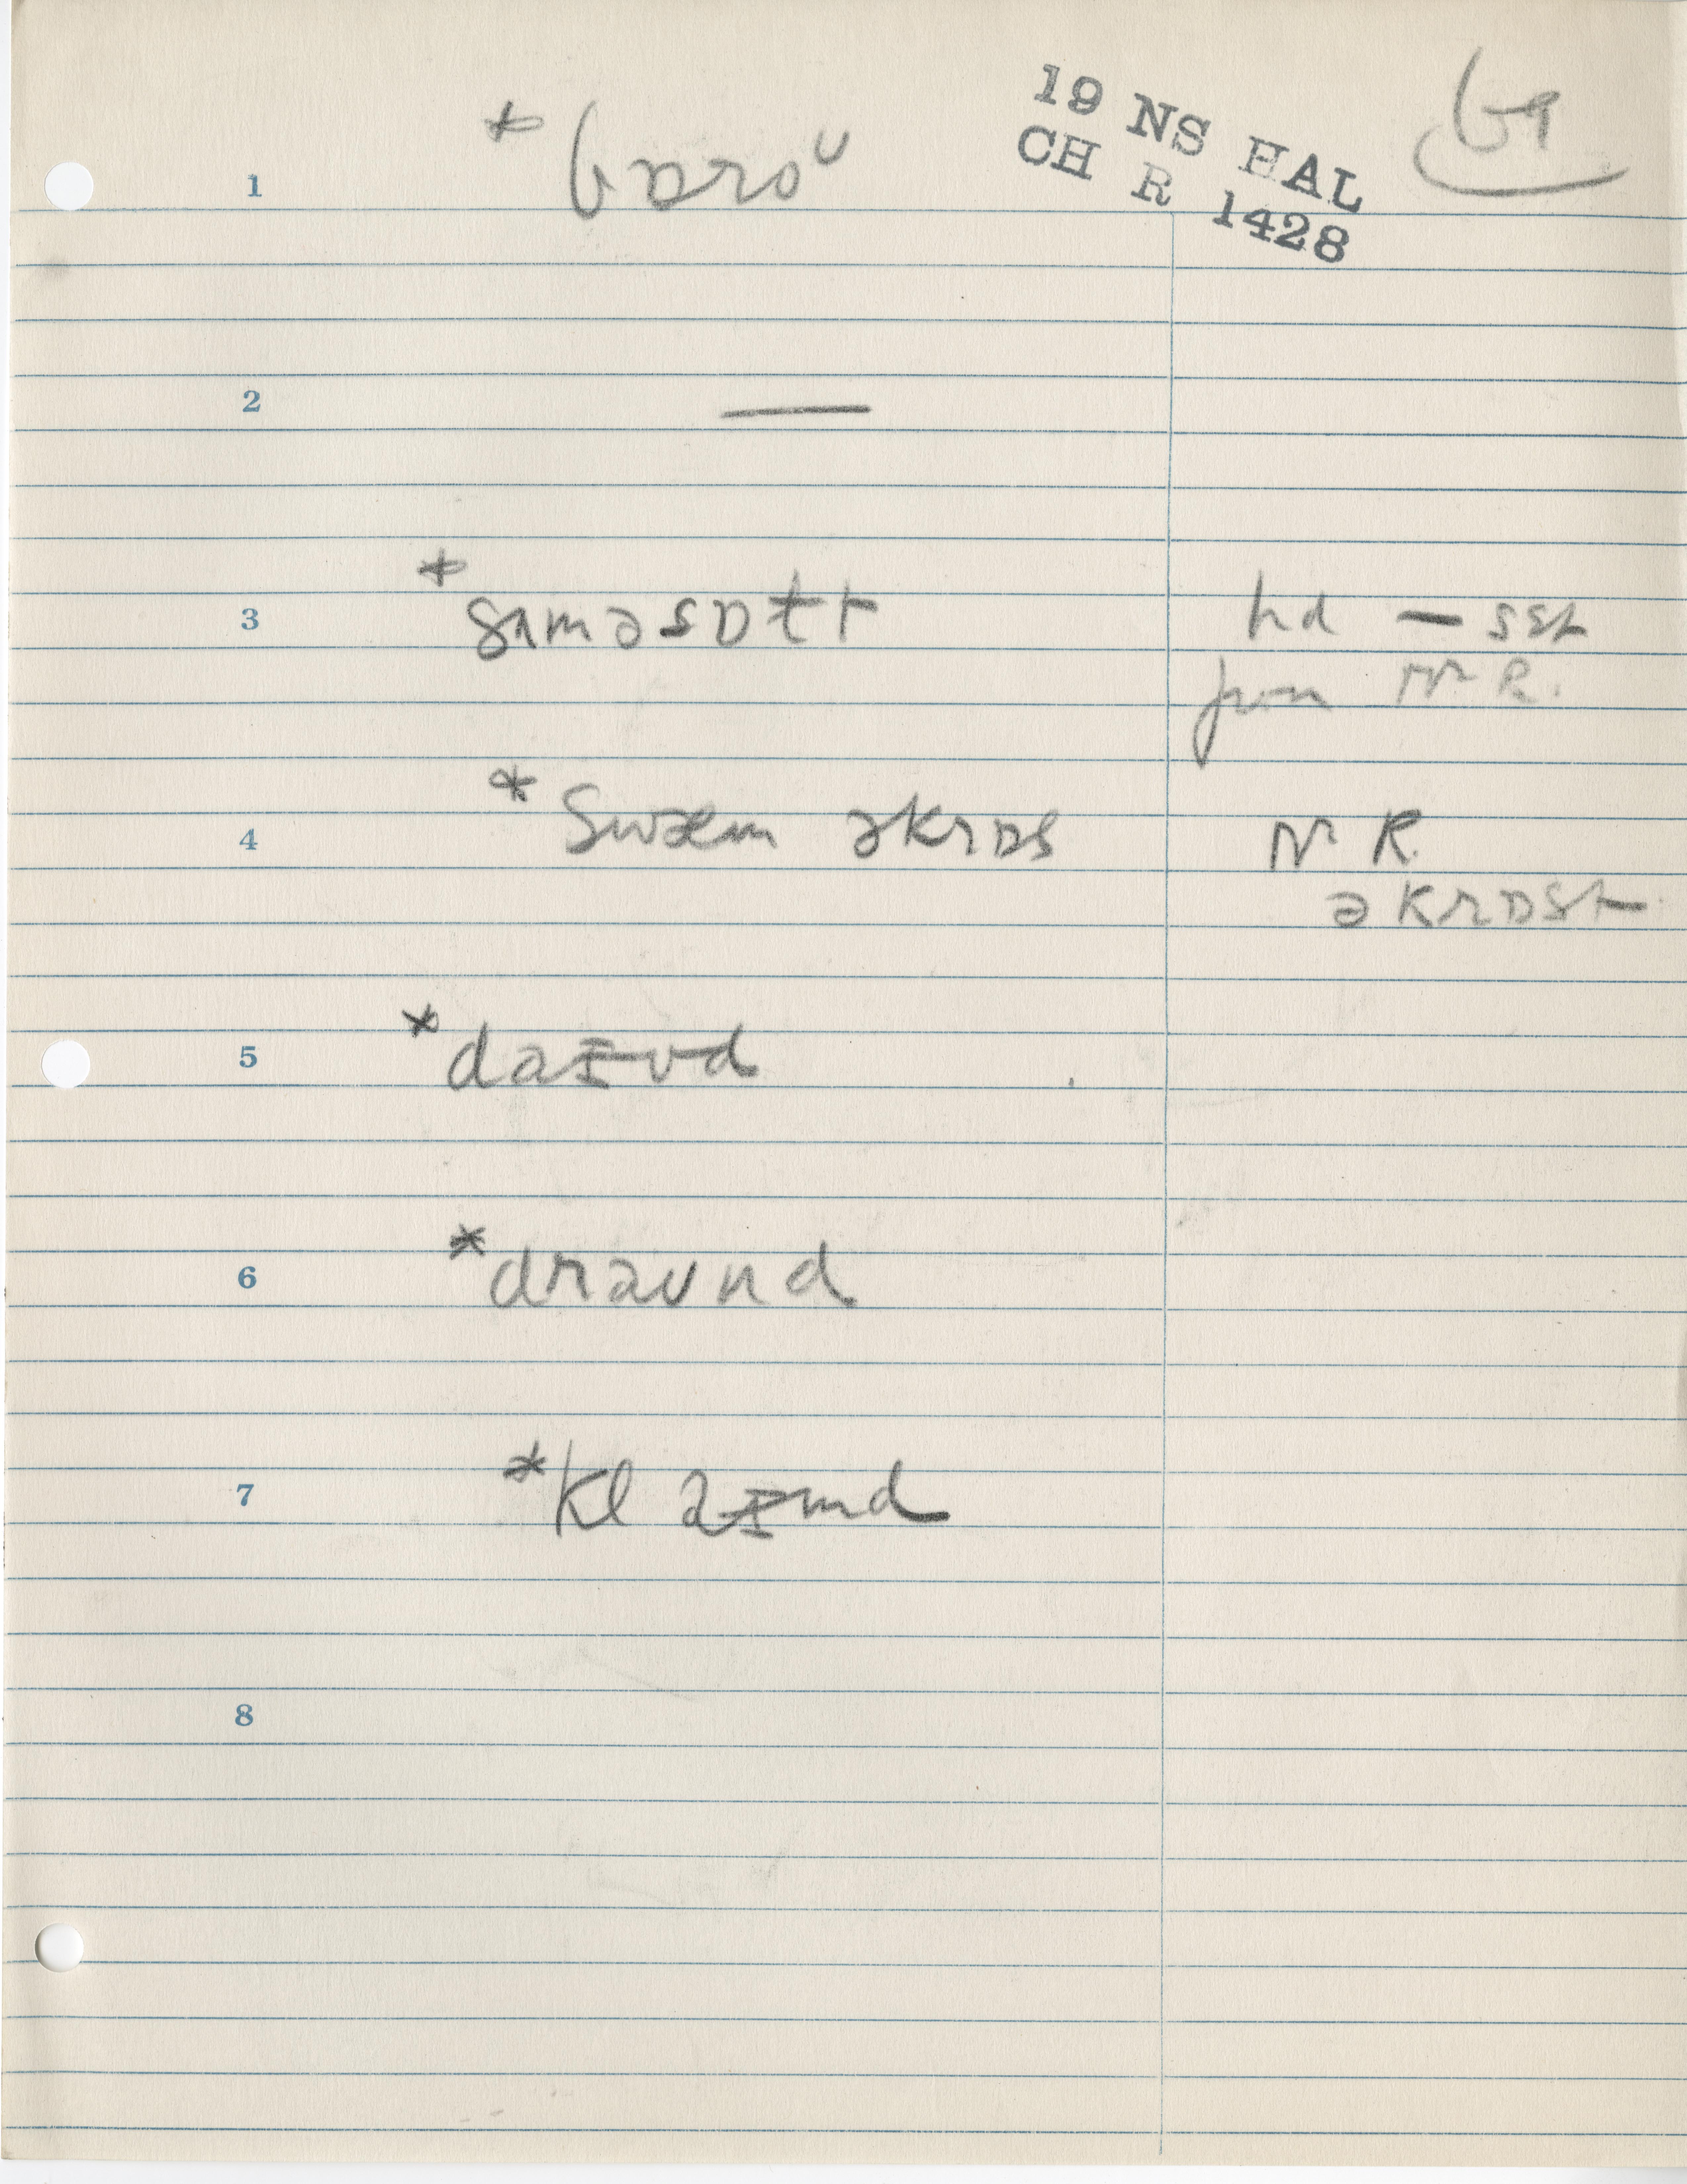 19 NS HAL
CH R 1428
69
1 *bɒroᵁ
2 —
3 *gɪməsɒtɪt
hd — sɛt
from Mr R.
4 *swæm əkrɒs
Mr R.
əkrɒst
5 *daɪvd
6 *draʊnd
7 *klaɪmd
8